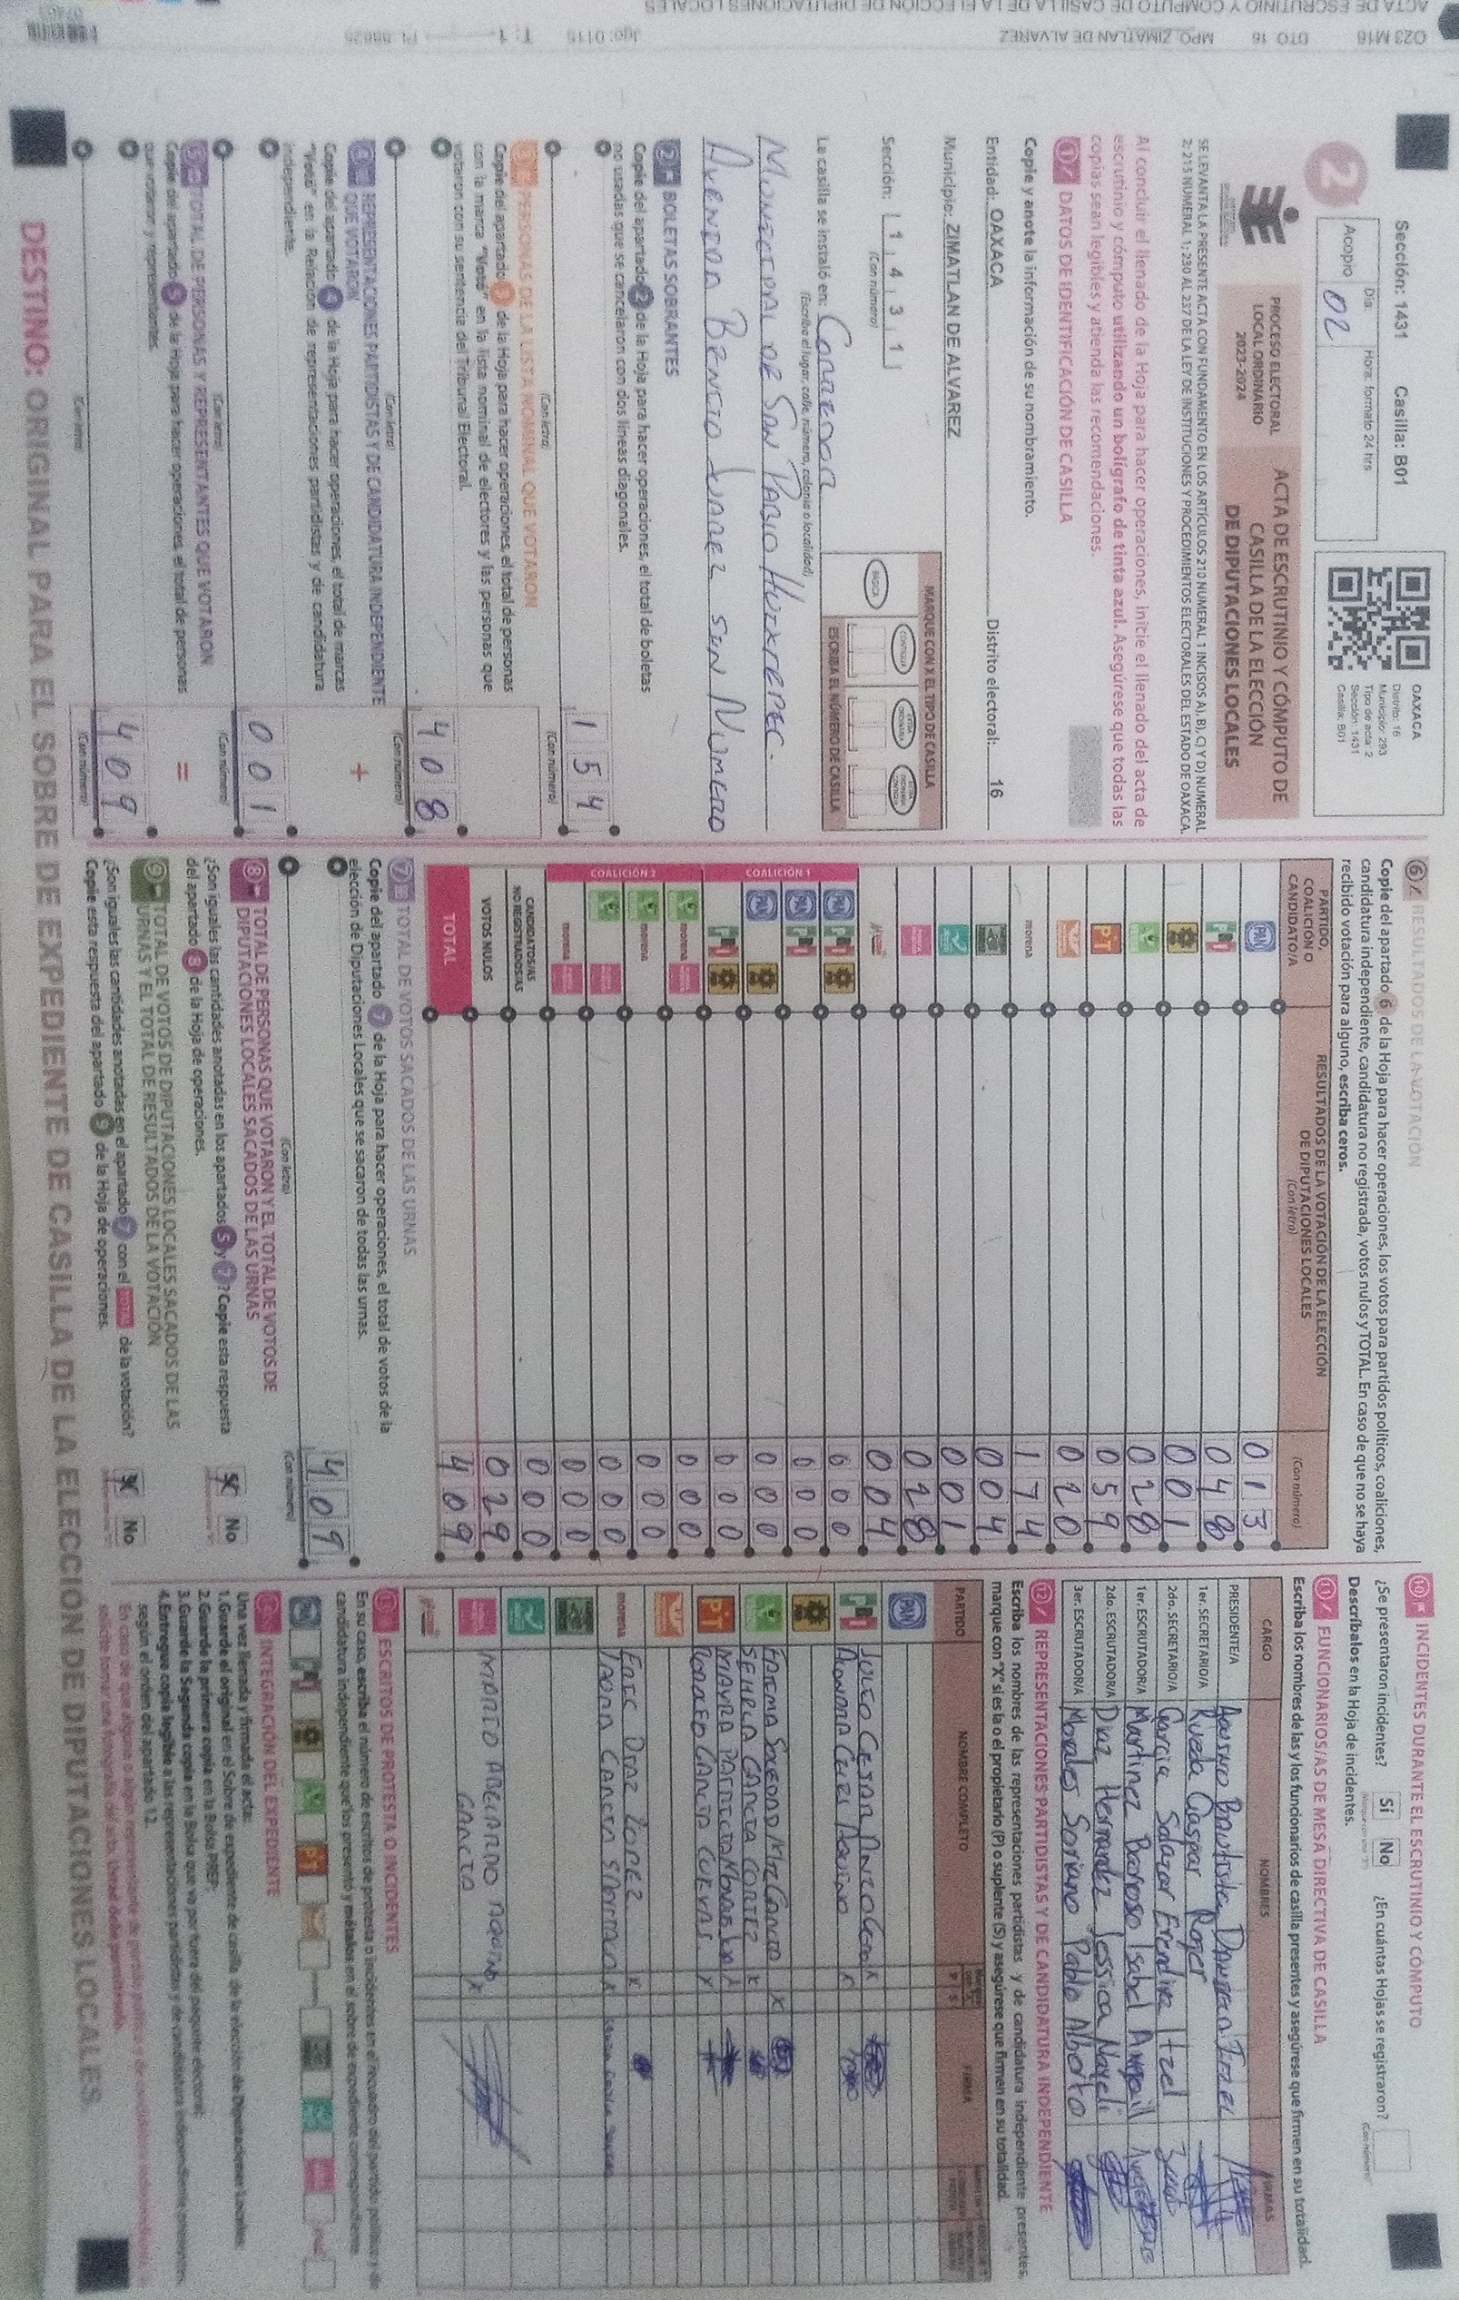 023 M16 DTO 16 MPO. ZIMATLAN DE ALVAREZ Jgo: 0115 T: 1
ACTA DE ESCRUTINIO Y CÓMPUTO DE CASILLA DE LA ELECCIÓN DE DIPUTACIONES LOCALES
Sección: 1431 Casilla: B01
2
Día: Hora: formato 24 hrs
Acopio 02
OAXACA
Distrito: 16
Municipio: 293
Tipo de acta: 2
Sección: 1431
Casilla: B01
PROCESO ELECTORAL
LOCAL ORDINARIO
2023-2024
ACTA DE ESCRUTINIO Y CÓMPUTO DE
CASILLA DE LA ELECCIÓN
DE DIPUTACIONES LOCALES
SE LEVANTA LA PRESENTE ACTA CON FUNDAMENTO EN LOS ARTÍCULOS 210 NUMERAL 1 INCISOS A), B), C) Y D) NUMERAL
2; 215 NUMERAL 1; 230 AL 237 DE LA LEY DE INSTITUCIONES Y PROCEDIMIENTOS ELECTORALES DEL ESTADO DE OAXACA.
Al concluir el llenado de la Hoja para hacer operaciones, inicie el llenado del acta de
escrutinio y cómputo utilizando un bolígrafo de tinta azul. Asegúrese que todas las
copias sean legibles y atienda las recomendaciones.
1 DATOS DE IDENTIFICACIÓN DE CASILLA
Copie y anote la información de su nombramiento.
Entidad: OAXACA Distrito electoral: 16
Municipio: ZIMATLAN DE ALVAREZ
Sección: 1 4 3 1
(Con número)
MARQUE CON X EL TIPO DE CASILLA
BÁSICA CONTIGUA
ESCRIBA EL NÚMERO DE CASILLA
La casilla se instaló en: Corredor
(Escriba el lugar, calle, número, colonia o localidad)
Municipal de San Pablo Huixtepec.
Avenida Benito Juarez sin Numero
2 BOLETAS SOBRANTES
Copie del apartado 2 de la Hoja para hacer operaciones, el total de boletas
no usadas que se cancelaron con dos líneas diagonales.
1 5 4
(Con letra) (Con número)
3 PERSONAS DE LA LISTA NOMINAL QUE VOTARON
Copie del apartado 3 de la Hoja para hacer operaciones, el total de personas
con la marca "Votó" en la lista nominal de electores y las personas que
votaron con su sentencia del Tribunal Electoral.
4 0 8
(Con letra) (Con número)
4 REPRESENTACIONES PARTIDISTAS Y DE CANDIDATURA INDEPENDIENTE
QUE VOTARON +
Copie del apartado 4 de la Hoja para hacer operaciones, el total de marcas
"Votó" en la Relación de representaciones partidistas y de candidatura
independiente.
0 0 1
(Con letra) (Con número)
5 TOTAL DE PERSONAS Y REPRESENTANTES QUE VOTARON
Copie del apartado 5 de la Hoja para hacer operaciones, el total de personas =
que votaron y representantes.
4 0 9
(Con letra) (Con número)
6 RESULTADOS DE LA VOTACIÓN
Copie del apartado 6 de la Hoja para hacer operaciones, los votos para partidos políticos, coaliciones,
candidatura independiente, candidatura no registrada, votos nulos y TOTAL. En caso de que no se haya
recibido votación para alguno, escriba ceros.
PARTIDO,
COALICIÓN O
CANDIDATO/A
RESULTADOS DE LA VOTACIÓN DE LA ELECCIÓN
DE DIPUTACIONES LOCALES
(Con letra) (Con número)
PAN 0 1 3
PRI 0 4 8
0 0 1
0 2 8
PT 0 5 9
0 2 0
morena 1 7 4
0 0 4
0 0 1
0 2 8
0 0 4
COALICIÓN 1
PAN PRI 0 0 0
PAN PRI 0 0 0
PAN 0 0 0
PRI 0 0 0
COALICIÓN 2
morena 0 0 0
morena 0 0 0
0 0 0
morena 0 0 0
CANDIDATOS/AS
NO REGISTRADOS/AS 0 0 0
VOTOS NULOS 0 2 9
TOTAL 4 0 9
7 TOTAL DE VOTOS SACADOS DE LAS URNAS
Copie del apartado 7 de la Hoja para hacer operaciones, el total de votos de la
elección de Diputaciones Locales que se sacaron de todas las urnas.
4 0 9
(Con letra) (Con número)
8 TOTAL DE PERSONAS QUE VOTARON Y EL TOTAL DE VOTOS DE
DIPUTACIONES LOCALES SACADOS DE LAS URNAS
¿Son iguales las cantidades anotadas en los apartados 5 y 7? Copie esta respuesta
del apartado 8 de la Hoja de operaciones. Sí No
9 TOTAL DE VOTOS DE DIPUTACIONES LOCALES SACADOS DE LAS
URNAS Y EL TOTAL DE RESULTADOS DE LA VOTACIÓN
¿Son iguales las cantidades anotadas en el apartado 7 con el TOTAL de la votación?
Copie esta respuesta del apartado 9 de la Hoja de operaciones. Sí No
10 INCIDENTES DURANTE EL ESCRUTINIO Y CÓMPUTO
¿Se presentaron incidentes? Sí No ¿En cuántas Hojas se registraron?
(Con número)
Descríbalos en la Hoja de incidentes.
11 FUNCIONARIOS/AS DE MESA DIRECTIVA DE CASILLA
Escriba los nombres de las y los funcionarios de casilla presentes y asegúrese que firmen en su totalidad.
CARGO NOMBRES FIRMAS
PRESIDENTE/A Bautista
1er. SECRETARIO/A Rueda Gaspar Roger
2do. SECRETARIO/A Garcia Salazar Erendira Itzel
1er. ESCRUTADOR/A Martinez Barroso Isabel
2do. ESCRUTADOR/A Diaz Hernandez Jessica Nayeli
3er. ESCRUTADOR/A Morales Soriano Pablo Alberto
12 REPRESENTACIONES PARTIDISTAS Y DE CANDIDATURA INDEPENDIENTE
Escriba los nombres de las representaciones partidistas y de candidatura independiente presentes,
marque con "X" si es la o el propietario (P) o suplente (S) y asegúrese que firmen en su totalidad.
PARTIDO NOMBRE COMPLETO P S FIRMA
PAN
PRI Julio Cesar
PT
morena Eric Diaz Lopez X
Mario Abelardo Aquino X
Garcia
13 ESCRITOS DE PROTESTA O INCIDENTES
En su caso, escriba el número de escritos de protesta o incidentes en el recuadro del partido político y de
candidatura independiente que los presentó y métalos en el sobre de expediente correspondiente.
INTEGRACIÓN DEL EXPEDIENTE
Una vez llenada y firmada el acta:
1. Guarde el original en el Sobre de expediente de casilla de la elección de Diputaciones Locales.
2. Guarde la primera copia en la Bolsa PREP.
3. Guarde la Segunda copia en la Bolsa que va por fuera del paquete electoral.
4. Entregue copia legible a las representaciones partidistas y de candidatura independiente presentes,
según el orden del apartado 12.
DESTINO: ORIGINAL PARA EL SOBRE DE EXPEDIENTE DE CASILLA DE LA ELECCIÓN DE DIPUTACIONES LOCALES